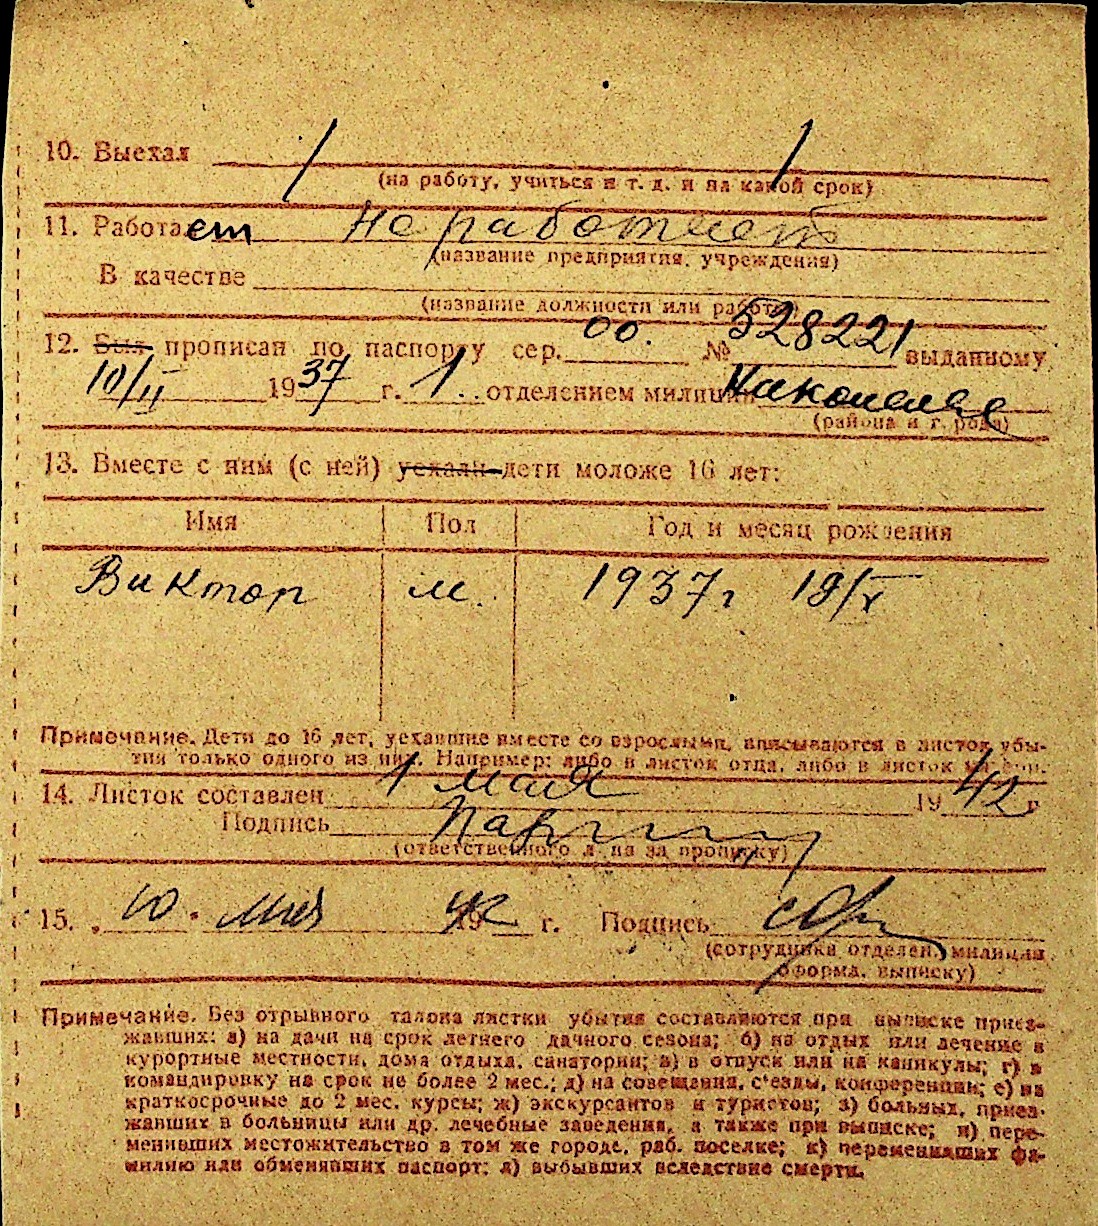 10. Выехал
(на работу, учиться и т. д. и на какой срок)
11. Работает не работает
(название предприятия, учреждения)
В качестве
(название должности или работы)
12. Был прописан по паспорту сер. оо. № 528221 выданному
10/II 1937 г. 1. отделением милиции
(района и города)
13. Вместе с ним (с ней) уехали дети моложе 16 лет:
Имя Пол Год и месяц рождения
Виктор м. 1937 г 19/V
Примечание. Дети до 16 лет, уехавшие вместе со взрослыми, вписываются в листок убы-
тия только одного из них. Например: либо в листок отца, либо в листок матери.
14. Листок составлен 1 мая 1942 г
Подпись
(ответственного л-ца за прописку)
15. „10" мая 1942 г. Подпись
(сотрудника отделен. милиции
оформа. выписку)
Примечание. Без отрывного талона листки убытия составляются при выписке приез-
жавших: а) на дачи на срок летнего дачного сезона; б) на отдых или лечение в
курортные местности, дома отдыха, санатории; в) в отпуск или на каникулы; г) в
командировку на срок не более 2 мес.; д) на совещания, с'езды, конференции; е) на
краткосрочные до 2 мес. курсы; ж) экскурсантов и туристов; з) больных, приез-
жавших в больницы или др. лечебные заведения, а также при выписке; и) пере-
менивших местожительство в том же городе, раб. поселке; к) переменивших фа-
милию или обменявших паспорт; л) выбывших вследствие смерти.